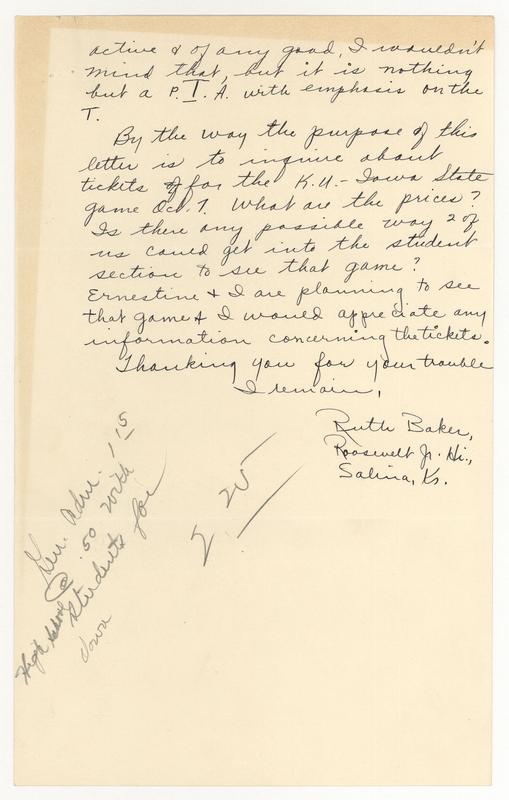 active & of any good, I wouldn't
mind that, but it is nothing
but a P.T.A. with emphasis on the
T.
By the way the purpose of this
letter is to inquire about
tickets for the K.U.-Iowa State
game Oct. 7. What are the prices?
Is there any possible way 2 of
us could get into the student
section to see that game?
Ernestine & I are planning to see
that game & I would appreciate any
information concerning the tickets.
Thanking you for your trouble
I remain,
Ruth Baker,
Roosevelt Jr. Hi.,
Salina, Ks.
Gen. Adm. 1.15
High School @ .50 with
students for